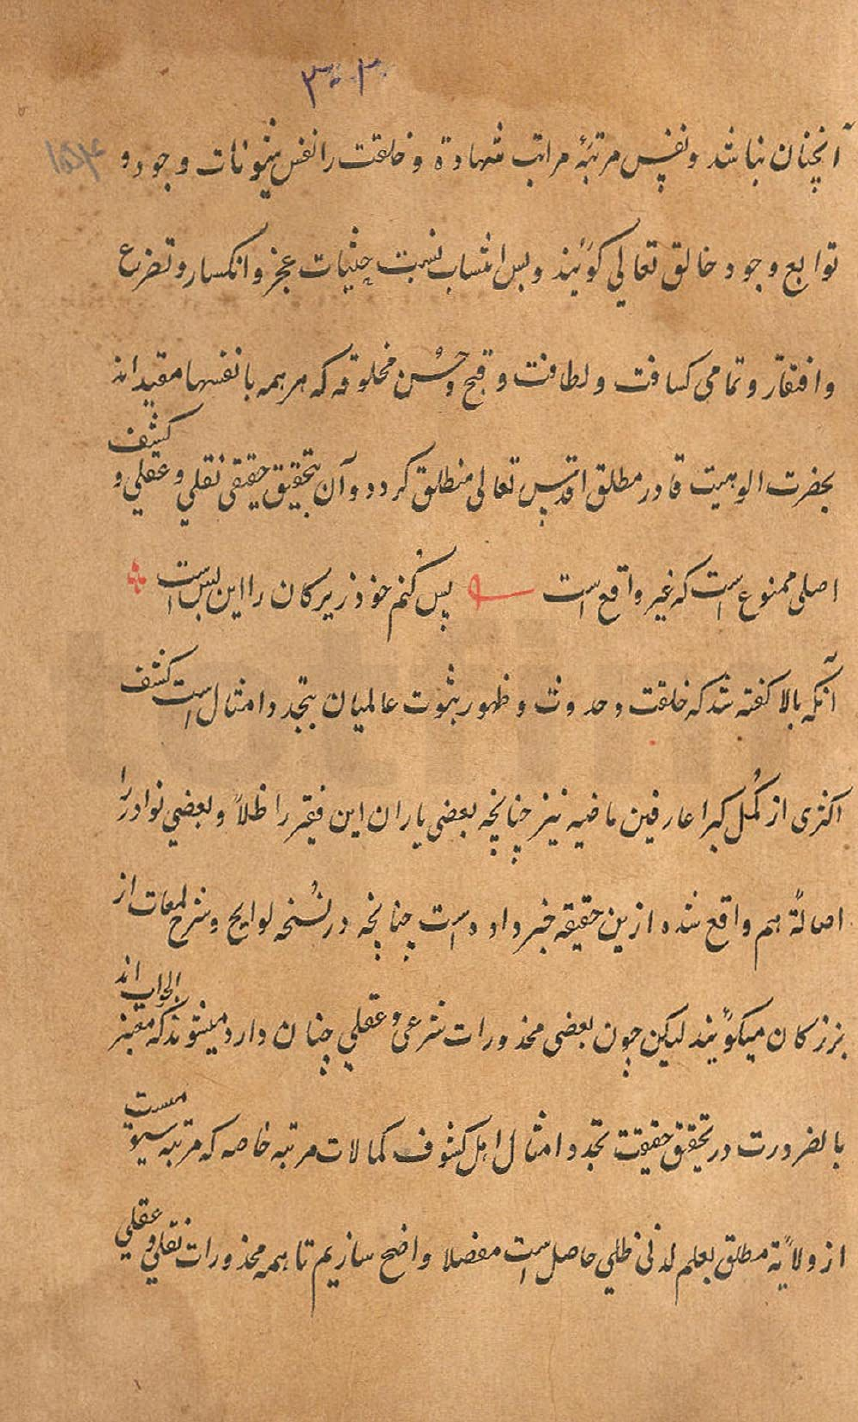 ۳۰۳
آنچنان نباشد و نفس مرتبهٔ مراتب شهادة و خلقت را نفس شیونات وجود و
توابع وجود خالق تعالی کوئیند و بس انتساب نسبت حیثیات عجز و انکسار و تضرع
وافتقار و تمامی کسافت و لطافت و قبح و حُسن مخلوقه که هر همه بانفسها مقیداند
بحضرت الوهیت قادر مطلق اقدس تعالی منطلق کردد و آن بتحقیق حقیقی نقلی و عقلی و کشف
اصلی ممنوع است که غیر واقع است پس کنم خود زیرکان را این بس است
آنکه بالا کفته شد که خلقت و حدوث و ظهور بثبوت عالمیان بتجدد امثال است کشف
اکثری از کُمل کبرا عارفین ماضیه نیز چنانچه بعضی یاران این فقیر را ظلاً و بعضی نوادر را
اصالةً هم واقع شده ازین حقیقه خبر داد دست چنانچه در نُسخه لوایح و شرح لمعات از
بزرکان میکوئیند لیکن چون بعضی محذورات شرعی و عقلی چنان دارد میشوند که معتبر الجواب اند
بالضرورت در تحقق حقیقت تجدد امثال اهل کشوف کمالات مرتبه خاصه که مرتبه سیوست
از ولایة مطلق بعلم لدنی ظلی حاصل است مفصلا واضح سازیم تا همه محذورات نقلی و عقلی